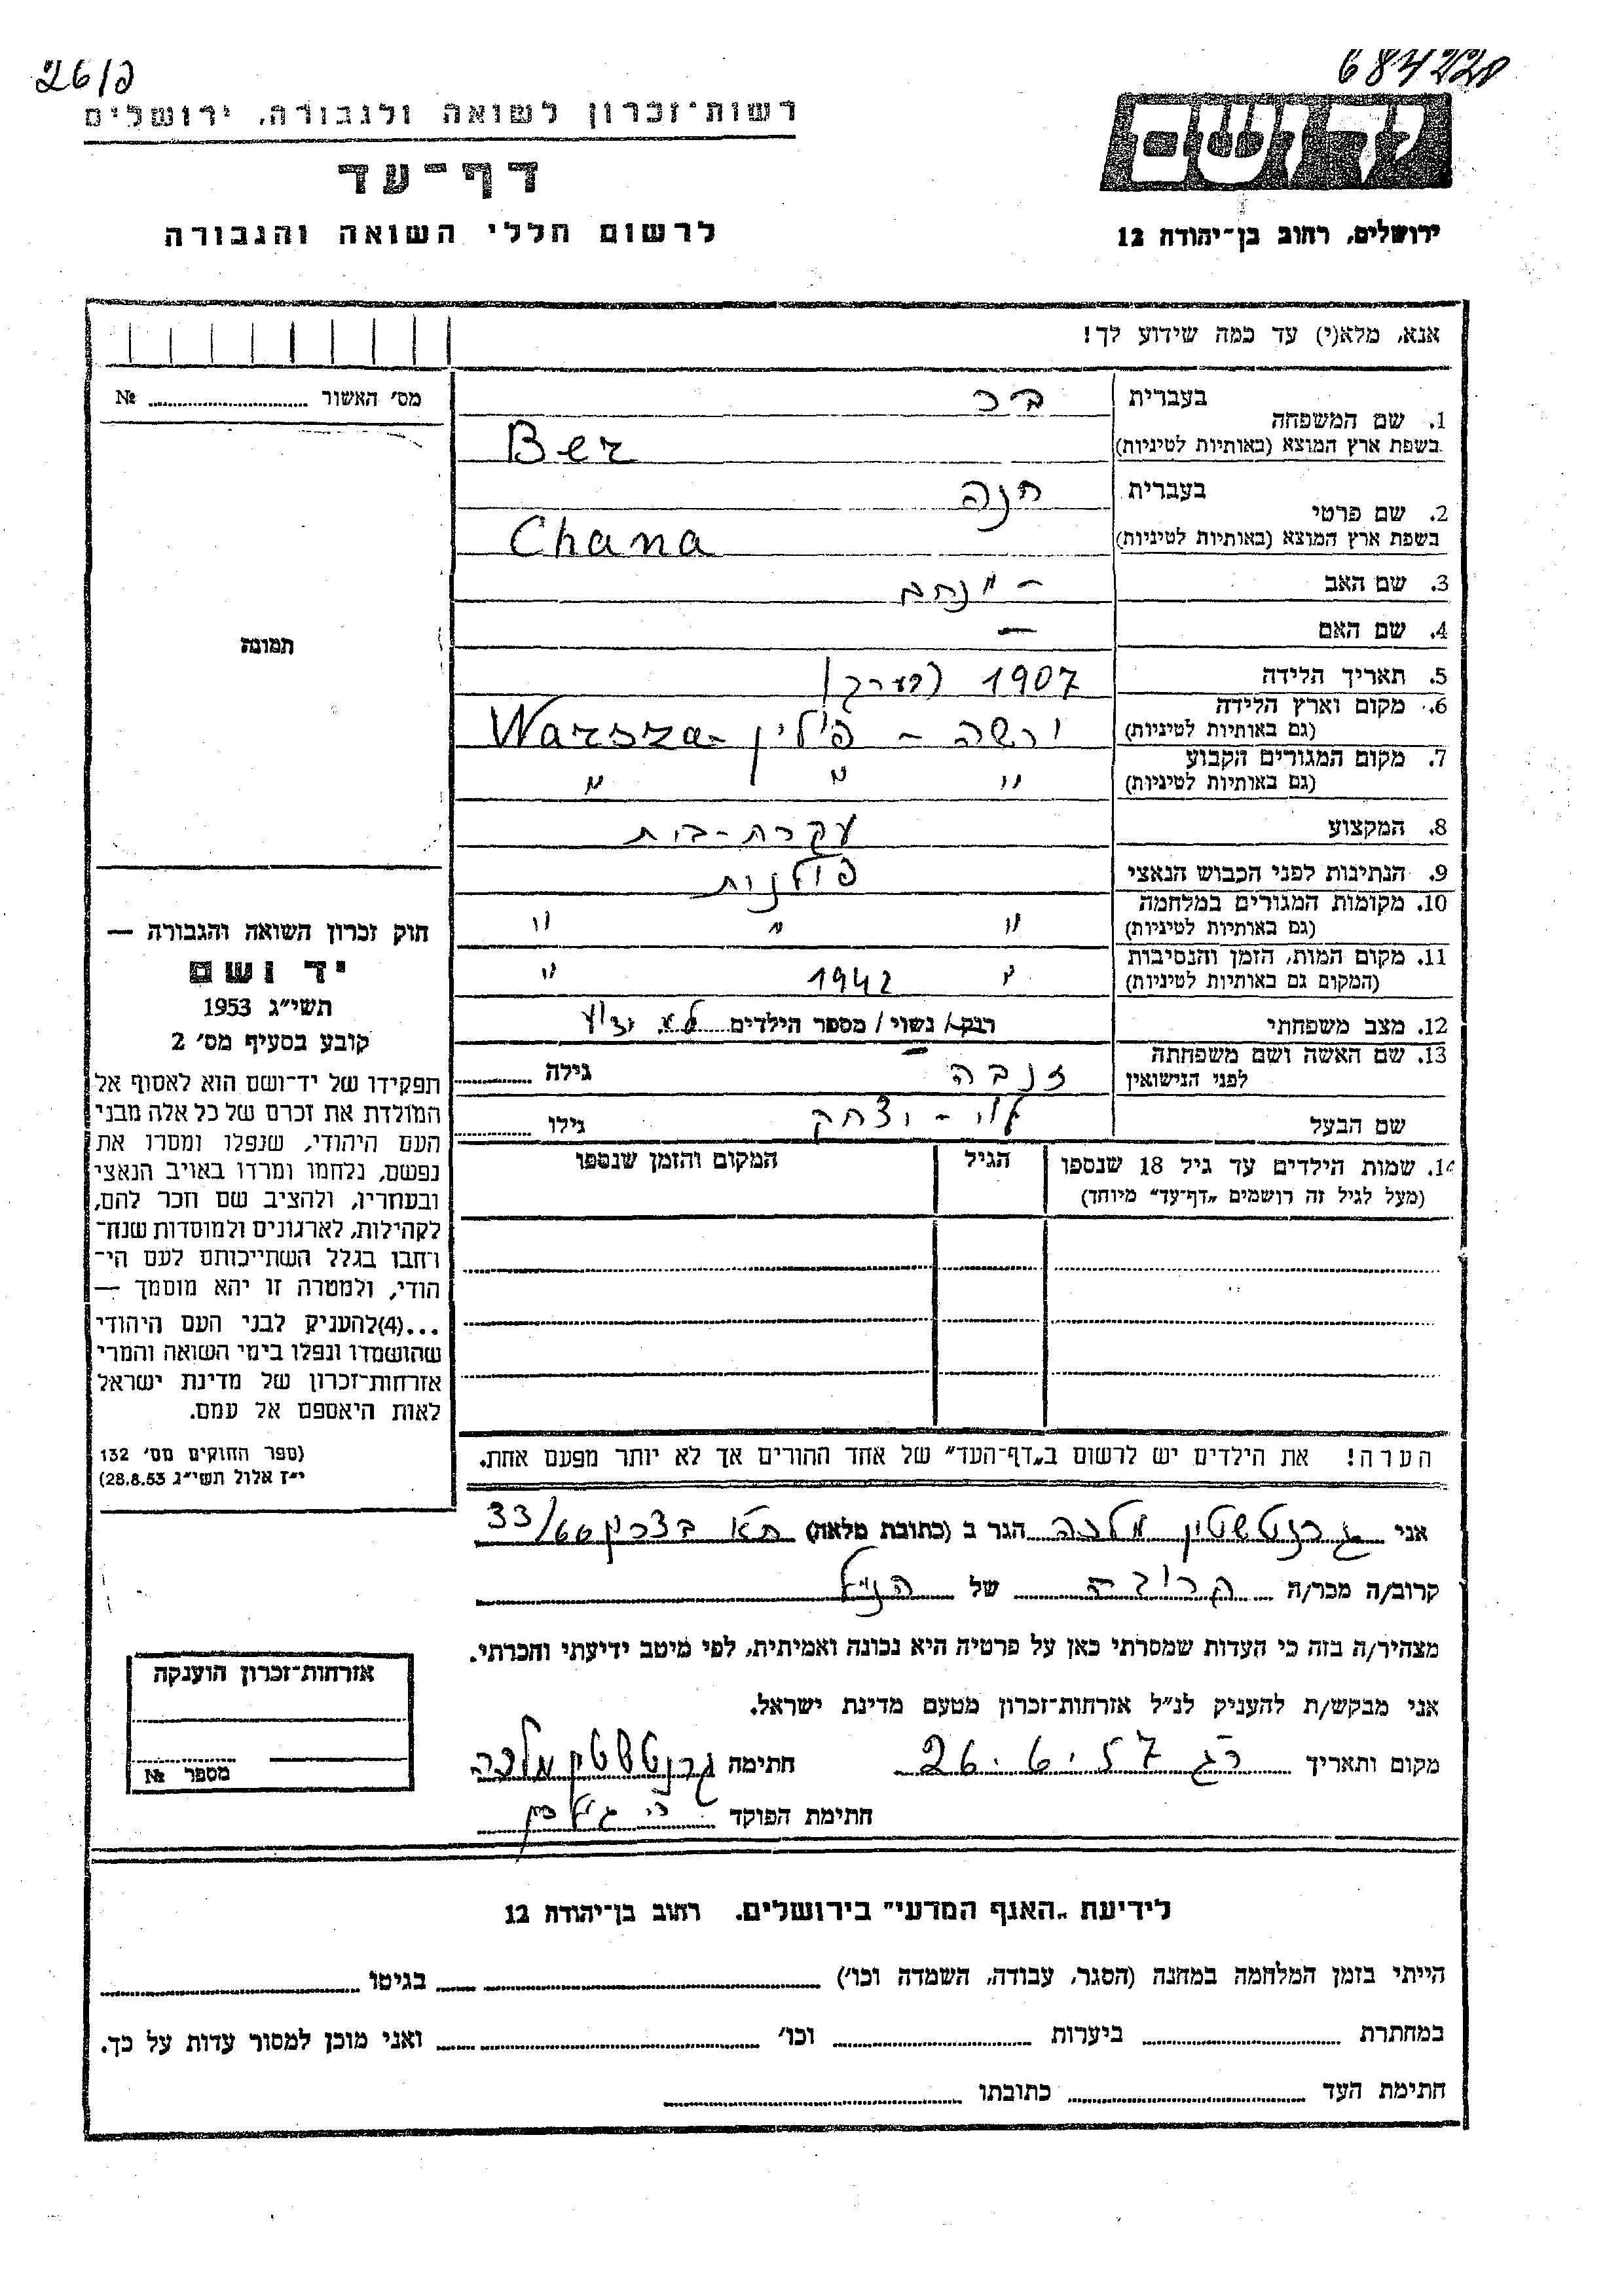 684220
261פ
יד ושם
רשות־זכרון לשואה ולגבורה, ירושלים
דף־עד
לרשום חללי השואה והגבורה
ירושלים, רחוב בן־יהודה 12
אנא, מלא(י) עד כמה שידוע לך!
מס׳ האשור № 
בעברית בר
1. שם המשפחה
בשפת ארץ המוצא (באותיות לטיניות) Ber
בעברית חנה
2. שם פרטי
בשפת ארץ המוצא (באותיות לטיניות) Chana
3. שם האב – מנחם
4. שם האם —
5. תאריך הלידה 1907 (בערך)
6. מקום וארץ הלידה
(גם באותיות לטיניות) ורשה – פולין – Warsza
7. מקום המגורים הקבוע
(גם באותיות לטיניות) " " "
8. המקצוע עקרת-בית
9. הנתינות לפני הכבוש הנאצי פולנית
10. מקומות המגורים במלחמה
(גם באותיות לטיניות) " " "
11. מקום המות, הזמן והנסיבות
(המקום גם באותיות לטיניות) " 1942 "
12. מצב משפחתי רוק/ נשוי/ מספר הילדים לא ידוע
13. שם האשה ושם משפחתה
לפני הנישואין גילה
שם הבעל לוי - יצחק גילו
14. שמות הילדים עד גיל 18 שנספו הגיל המקום והזמן שנספו
(מעל לגיל זה רושמים „דף־עד״ מיוחד)
הערה! את הילדים יש לרשום ב„דף־העד״ של אחד ההורים אך לא יותר מפעם אחת.
תמונה
חוק זכרון השואה והגבורה —
יד ושם
תשי״ג 1953
קובע בסעיף מס׳ 2
תפקידו של יד־ושם הוא לאסוף אל
המולדת את זכרם של כל אלה מבני
העם היהודי, שנפלו ומסרו את
נפשם, נלחמו ומרדו באויב הנאצי
ובעוזריו, ולהציב שם וזכר להם,
לקהילות, לארגונים ולמוסדות שנח־
רחבו בגלל השתייכותם לעם הי־
הודי, ולמטרה זו יהא מוסמך —
...(4)להעניק לבני העם היהודי
שהושמדו ונפלו בימי השואה והמרי
אזרחות־זכרון של מדינת ישראל
לאות היאספם אל עמם.
(ספר החוקים מס׳ 132
י״ז אלול תשי״ג 28.8.53)
אני גרנטשטין מלכה הגר ב (כתובת מלאה) ת״א 33/66
קרוב/ה מכר/ה קרובה של הנ״ל
מצהיר/ה בזה כי העדות שמסרתי כאן על פרטיה היא נכונה ואמיתית, לפי מיטב ידיעתי והכרתי.
אני מבקש/ת להעניק לנ״ל אזרחות־זכרון מטעם מדינת ישראל.
מקום ותאריך רג 26.6.57 חתימה גרנטשטין מלכה
חתימת הפוקד
אזרחות־זכרון הוענקה
מספר №
לידיעת „האגף המדעי״ בירושלים, רחוב בן־יהודה 12
הייתי בזמן המלחמה במחנה (הסגר, עבודה, השמדה וכו׳) בגיטו
במחתרת ביערות וכו׳ ואני מוכן למסור עדות על כך.
חתימת העד כתובתו